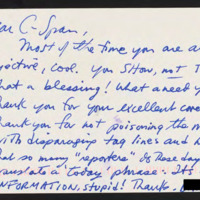 ear C-Span,
Most of the time you are a
jective, cool. You SHOW, not T
hat a blessing! What a need y
hank you for your excellent cove
hank you for not poisoning the m
with disparaging tag lines and h
at so many "reporters" do these day
ranslate a "today" phrase: Its
NFORMATION, stupid! Thanks,